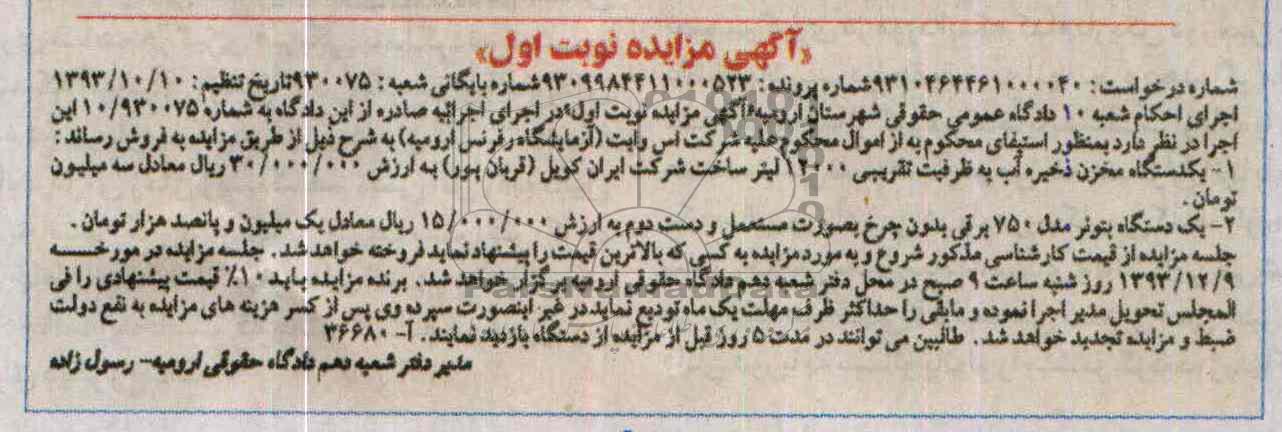 «آگهی مزایده نوبت اول»
شماره درخواست: ۹۳۱۰۴۶۴۴۶۱۰۰۰۰۴۰ شماره پرونده: ۹۳۰۹۹۸۴۴۱۱۰۰۰۵۲۳ شماره بایگانی شعبه: ۹۳۰۰۷۵ تاریخ تنظیم: ۱۳۹۳/۱۰/۱۰
اجرای احکام شعبه ۱۰ دادگاه عمومی حقوقی شهرستان ارومیه «آگهی مزایده نوبت اول» در اجرای اجرائیه صادره از این دادگاه به شماره ۱۰/۹۳۰۰۷۵ این
اجرا در نظر دارد بمنظور استیفای محکوم به از اموال محکوم علیه شرکت اس وایت (آزمایشگاه رفرنس ارومیه) به شرح ذیل از طریق مزایده به فروش رساند:
۱- یکدستگاه مخزن ذخیره آب به ظرفیت تقریبی ۱۲۰۰۰ لیتر ساخت شرکت ایران کویل (قربان پور) به ارزش ۳۰/۰۰۰/۰۰۰ ریال معادل سه میلیون
تومان.
۲- یک دستگاه بتونر مدل ۷۵۰ برقی بدون چرخ بصورت مستعمل و دست دوم به ارزش ۱۵/۰۰۰/۰۰۰ ریال معادل یک میلیون و پانصد هزار تومان.
جلسه مزایده از قیمت کارشناسی مذکور شروع و به مورد مزایده به کسی که بالاترین قیمت را پیشنهاد نماید فروخته خواهد شد. جلسه مزایده در مورخــه
۱۳۹۳/۱۲/۹ روز شنبه ساعت ۹ صبح در محل دفتر شعبه دهم دادگاه حقوقی ارومیه برگزار خواهد شد. برنده مزایده باید ۱۰٪ قیمت پیشنهادی را فی
المجلس تحویل مدیر اجرا نموده و مابقی را حداکثر ظرف مهلت یک ماه تودیع نماید در غیر اینصورت سپرده وی پس از کسر هزینه های مزایده به نفع دولت
ضبط و مزایده تجدید خواهد شد. طالبین می توانند در مدت ۵ روز قبل از مزایده از دستگاه بازدید نمایند. آ- ۳۶۶۸۰
مدیر دفتر شعبه دهم دادگاه حقوقی ارومیه- رسول زاده